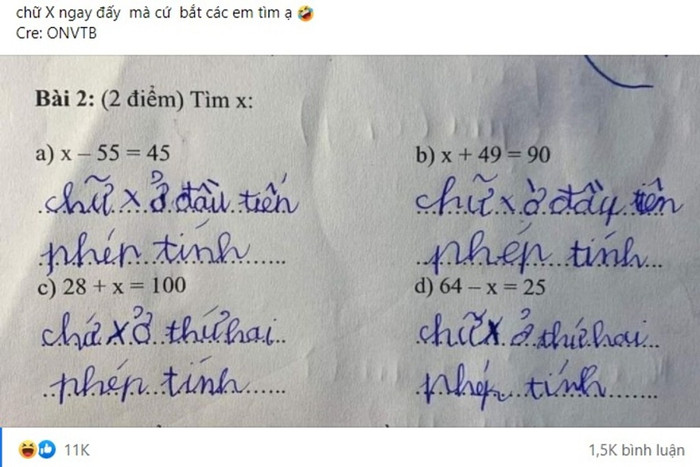 chữ X ngay đấy mà cứ bắt các em tìm ạ 🤣
Cre: ONVTB
Bài 2: (2 điểm) Tìm x:
a) x – 55 = 45
chữ x ở đầu tiến
phép tính
b) x + 49 = 90
chữ x ở đầy tiên
phép tính
c) 28 + x = 100
chá x ở thứ hai
phép tính
d) 64 – x = 25
chữ x ở thứ hai
phép tính
11K
1,5K bình luận